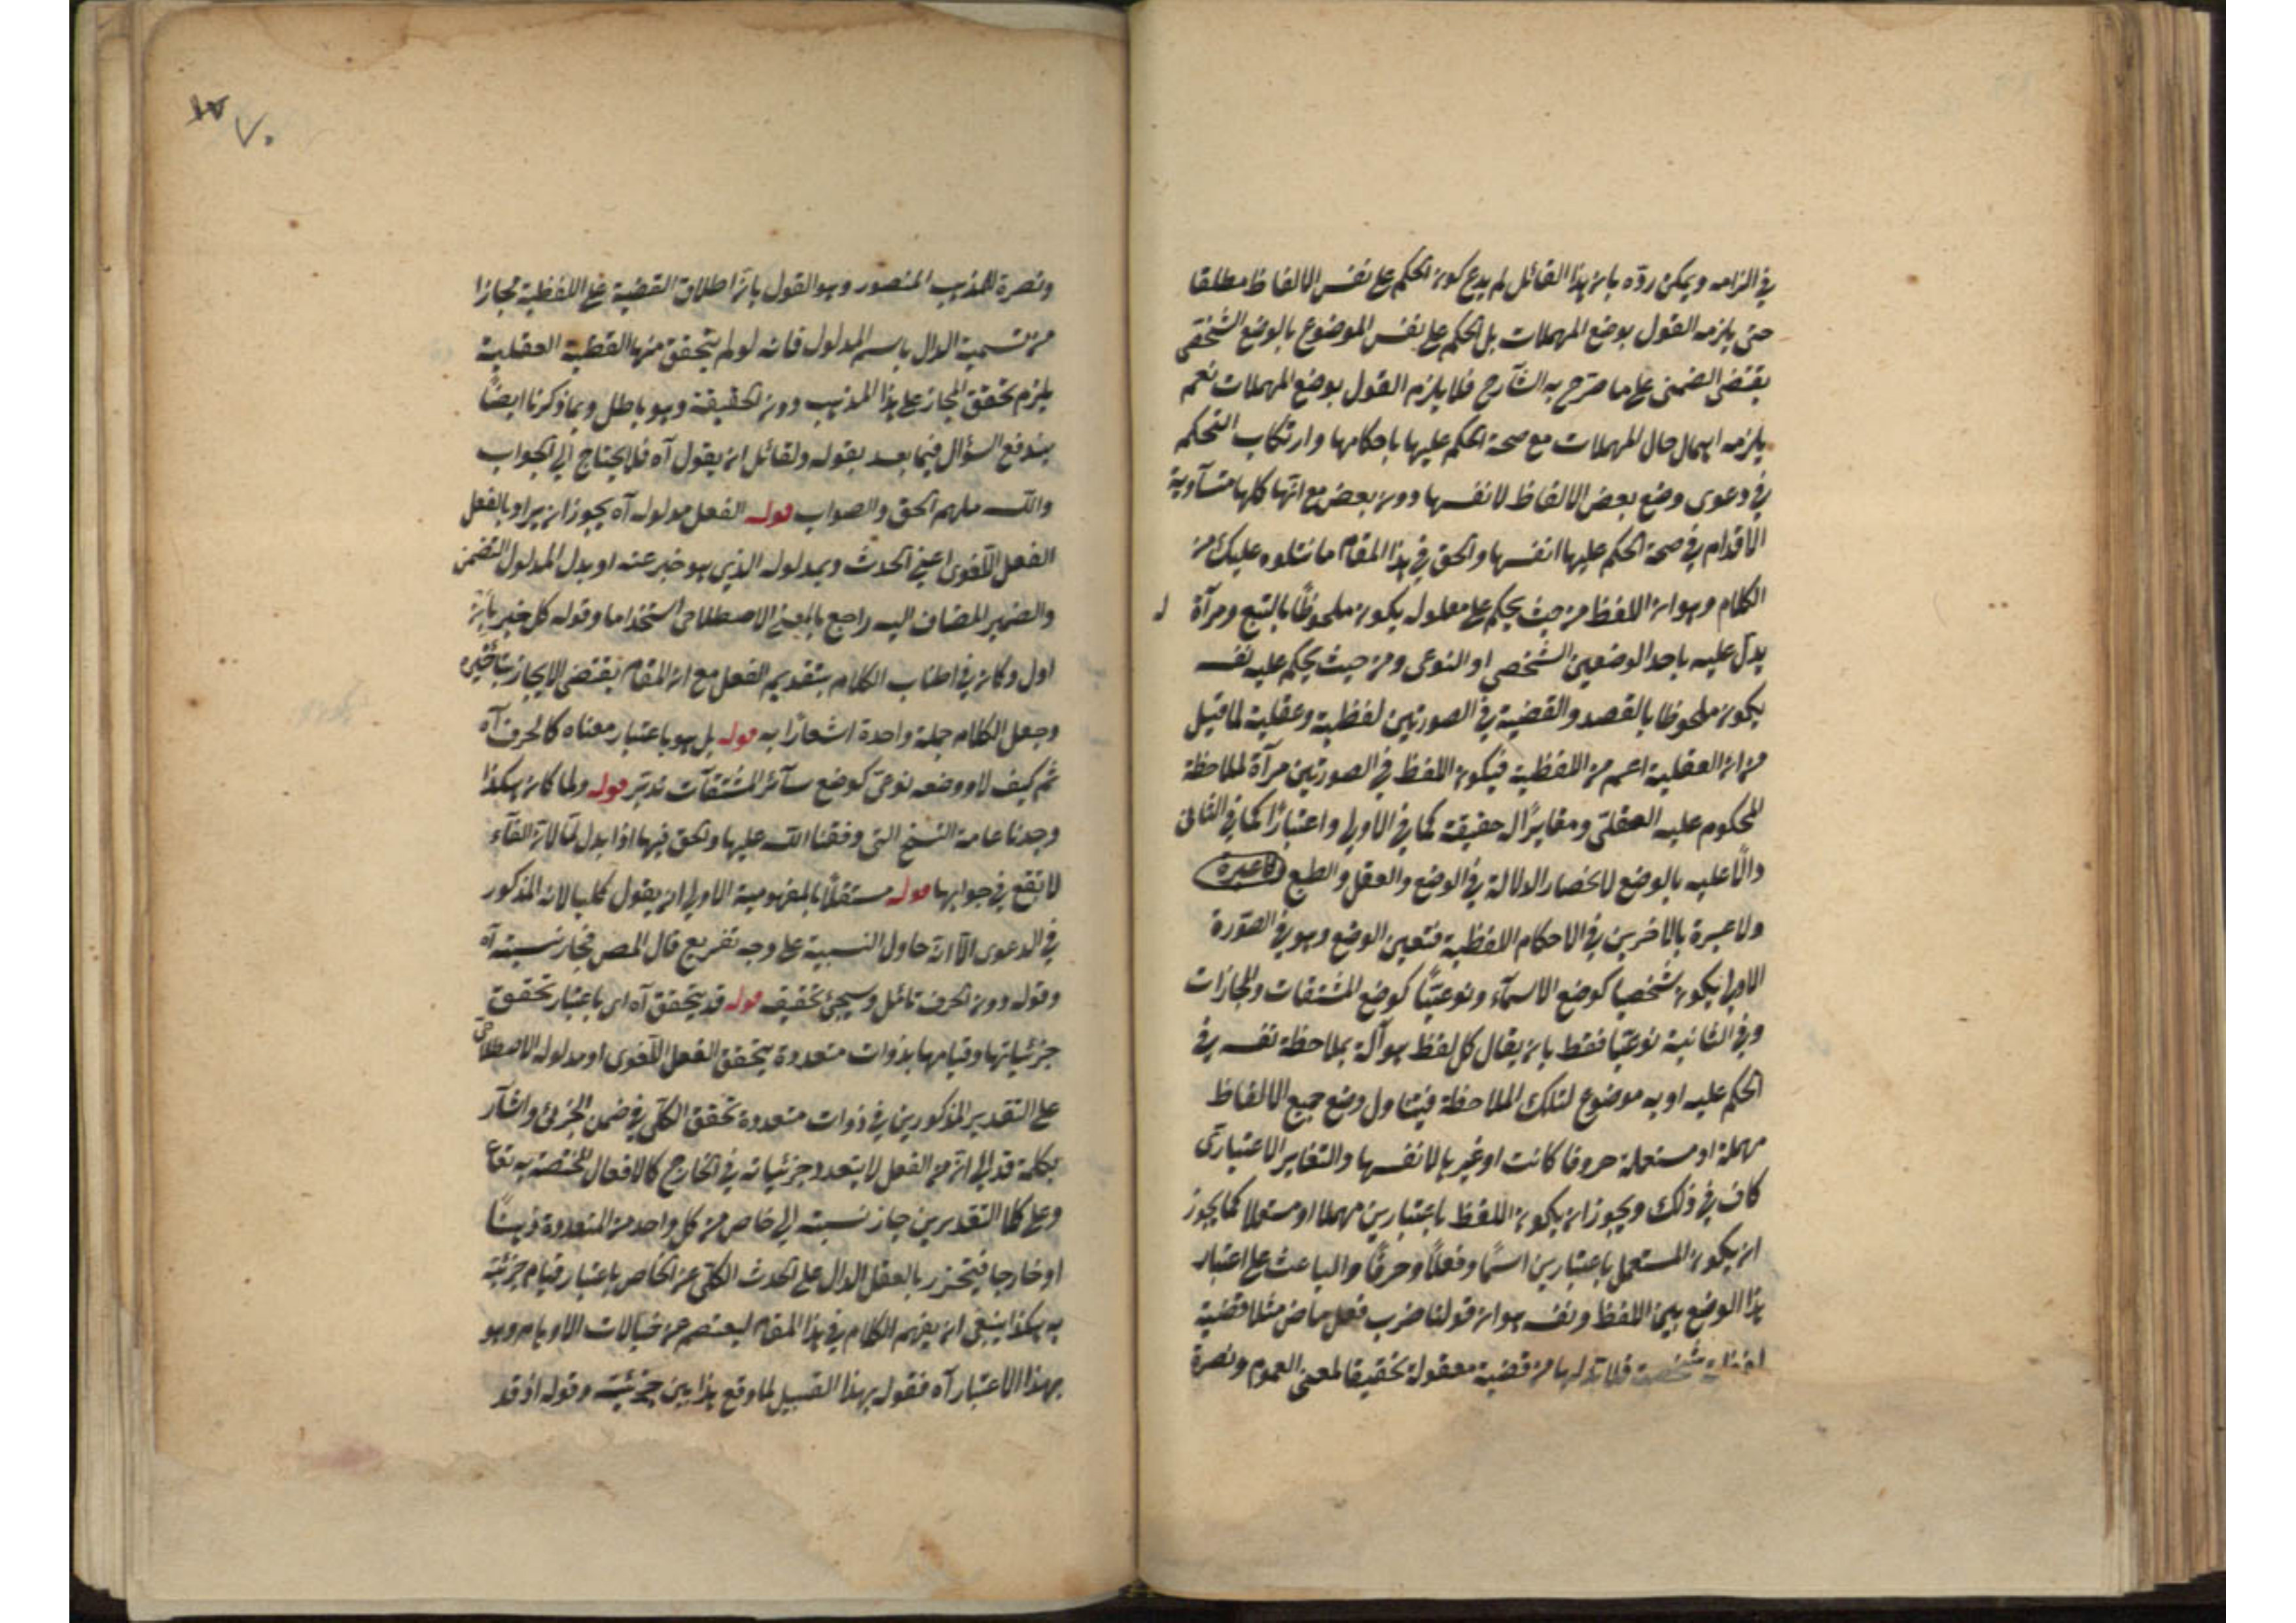 في الزامه ويمكن ردّه بان هذا القائل لم يدع كون الحكم على نفس الالفاظ مطلقا
حتى يلزمه القول بوضع المهملات بل الحكم على نفس الموضوع بالوضع الشخصي
يقتضى الضمنى على ما صرح به الشارح فلا يلزم القول بوضع المهملات نعم
يلزمه اهمال حال المهملات مع صحة الحكم عليها باحكامها وارتكاب التحكم
في دعوى وضع بعض الالفاظ لانفسها دون بعض مع انّها كلها متساوية
الاقدام في صحة الحكم عليها انفسها والحق في هذا المقام ما نتلوه عليك من
الكلام وهو ان اللفظ من حيث يحكم على معلوله يكون ملحوظًا بالتبع ومرآة ل
يدلّ عليه باحد الوضعين الشخصي او النوعى ومن حيث يحكم عليه نفسه
يكون ملحوظا بالقصد والقضية في الصورتين لفظية وعقلية لما قيل
من ان العقلية اعم من اللفظية فيكون اللفظ في الصورتين مرآة لملاحظة
المحكوم عليه العقلى ومغايرًا له حقيقة كما في الاولى واعتبارًا كما في الثانى
دالًا عليه بالوضع لانحصار الدلالة في الوضع والعقل والطبع لاعبرة
ولا عبرة بالاخرين في الاحكام اللفظية فتعين الوضع وهو في الصّورة
الاولى يكون شخصيا كوضع الاسمآء ونوعيًّا كوضع المشتقات والمجازات
وفي الثانية نوعيّا فقط بان يقال كل لفظ هو آلة بملاحظة نفسه في
الحكم عليه او به موضوع لتلك الملاحظة فيتناول وضع جميع الالفاظ
مهملة او مستعملة حروفا كانت او غيرها لانفسها والتغاير الاعتبارى
كاف في ذلك ويجوز ان يكون اللفظ باعتبارين مهملا او مستعملا كما يجوز
ان يكون المستعمل باعتبارين اسمًا وفعلًا وحرفًا والباعث على اعتبار
هذا الوضع بين اللفظ ونفسه هو ان قولنا ضرب فعل ماض مثلا قضية
شخصية فلا بدّ لها من قضية معقولة تحقيقا لمعنى العموم ونصرة
١٧
٧٠
ونصرة للمذهب المنصور وهو القول بانّ اطلاق القضية على اللفظية مجازا
من تسمية الدال باسم المدلول فانه لو لم يتحقق منها القضية العقلية
يلزم تحقق المجاز على هذا المذهب دون الحقيقة وهو باطل وبما ذكرنا ايضًا
يندفع السؤال فيما بعد بقوله ولقائل ان يقول آه فلا يحتاج الى الجواب
والله ملهم الحق والصواب قوله الفعل مدلوله آه يجوز ان يراد بالفعل
الفعل اللّغوى اعني الحدث وبمدلوله الذي هو خبر عنه او بدل المدلول التضمن
والضمير المضاف اليه راجع بالمعنى الاصطلاحى استخداما وقوله كل خبر بان
اول وكان في اطناب الكلام بتقديم الفعل مع ان المقام يقتضى الايجاز بتاخيره
وجعل الكلام جملة واحدة اشعارًا به قوله بل هو باعتبار معناه كالحرف آه
ثم كيف لا ووضعه نوعىّ كوضع سآئر المشتقآت تدبّر قوله ولما كان هكذا
وجدنا عامة النسخ التى وفقنا الله عليها والحق فيها اذا بدل لمّا لانّ الفآء
لا تقع في جوابها قوله مستقلًا بالمفهومية الاولى ان يقول كليا لانه المذكور
في الدعوى الّا انّه حاول النسبية على وجه تفريع قال المص فجاز نسبته آه
وقوله دون الحرف تأمّل وسيجئ تحقيقه قوله قد يتحقق آه اى باعتبار تحقق
جزئياتها وقيامها بذوات متعددة يتحقق الفعل اللّغوى او مدلوله الاصطلاحى
على التقدير المذكورين في ذوات متعددة تحقق الكلّى في ضمن الجزئى واشآر
بكلمة قد الى انّ من الفعل لا يتعدد جزئياته في الخارج كالافعال المختصة به تعا
وعلى كلا التقديرين جاز نسبته الى خاص من كل واحد من المتعددة ذهنًا
او خارجا فيتحرز بالعقل الدال على الحدث الكلى عن الخاص باعتبار قيام جزئيّة
به هكذا ينبغى ان يفهم الكلام في هذا المقام ليعتصم عن خيالات الاوهام وهو
بهذا الاعتبار آه فقوله بهذا القبيل لما وقع هذا بين جزئيّة وقوله اذ قد